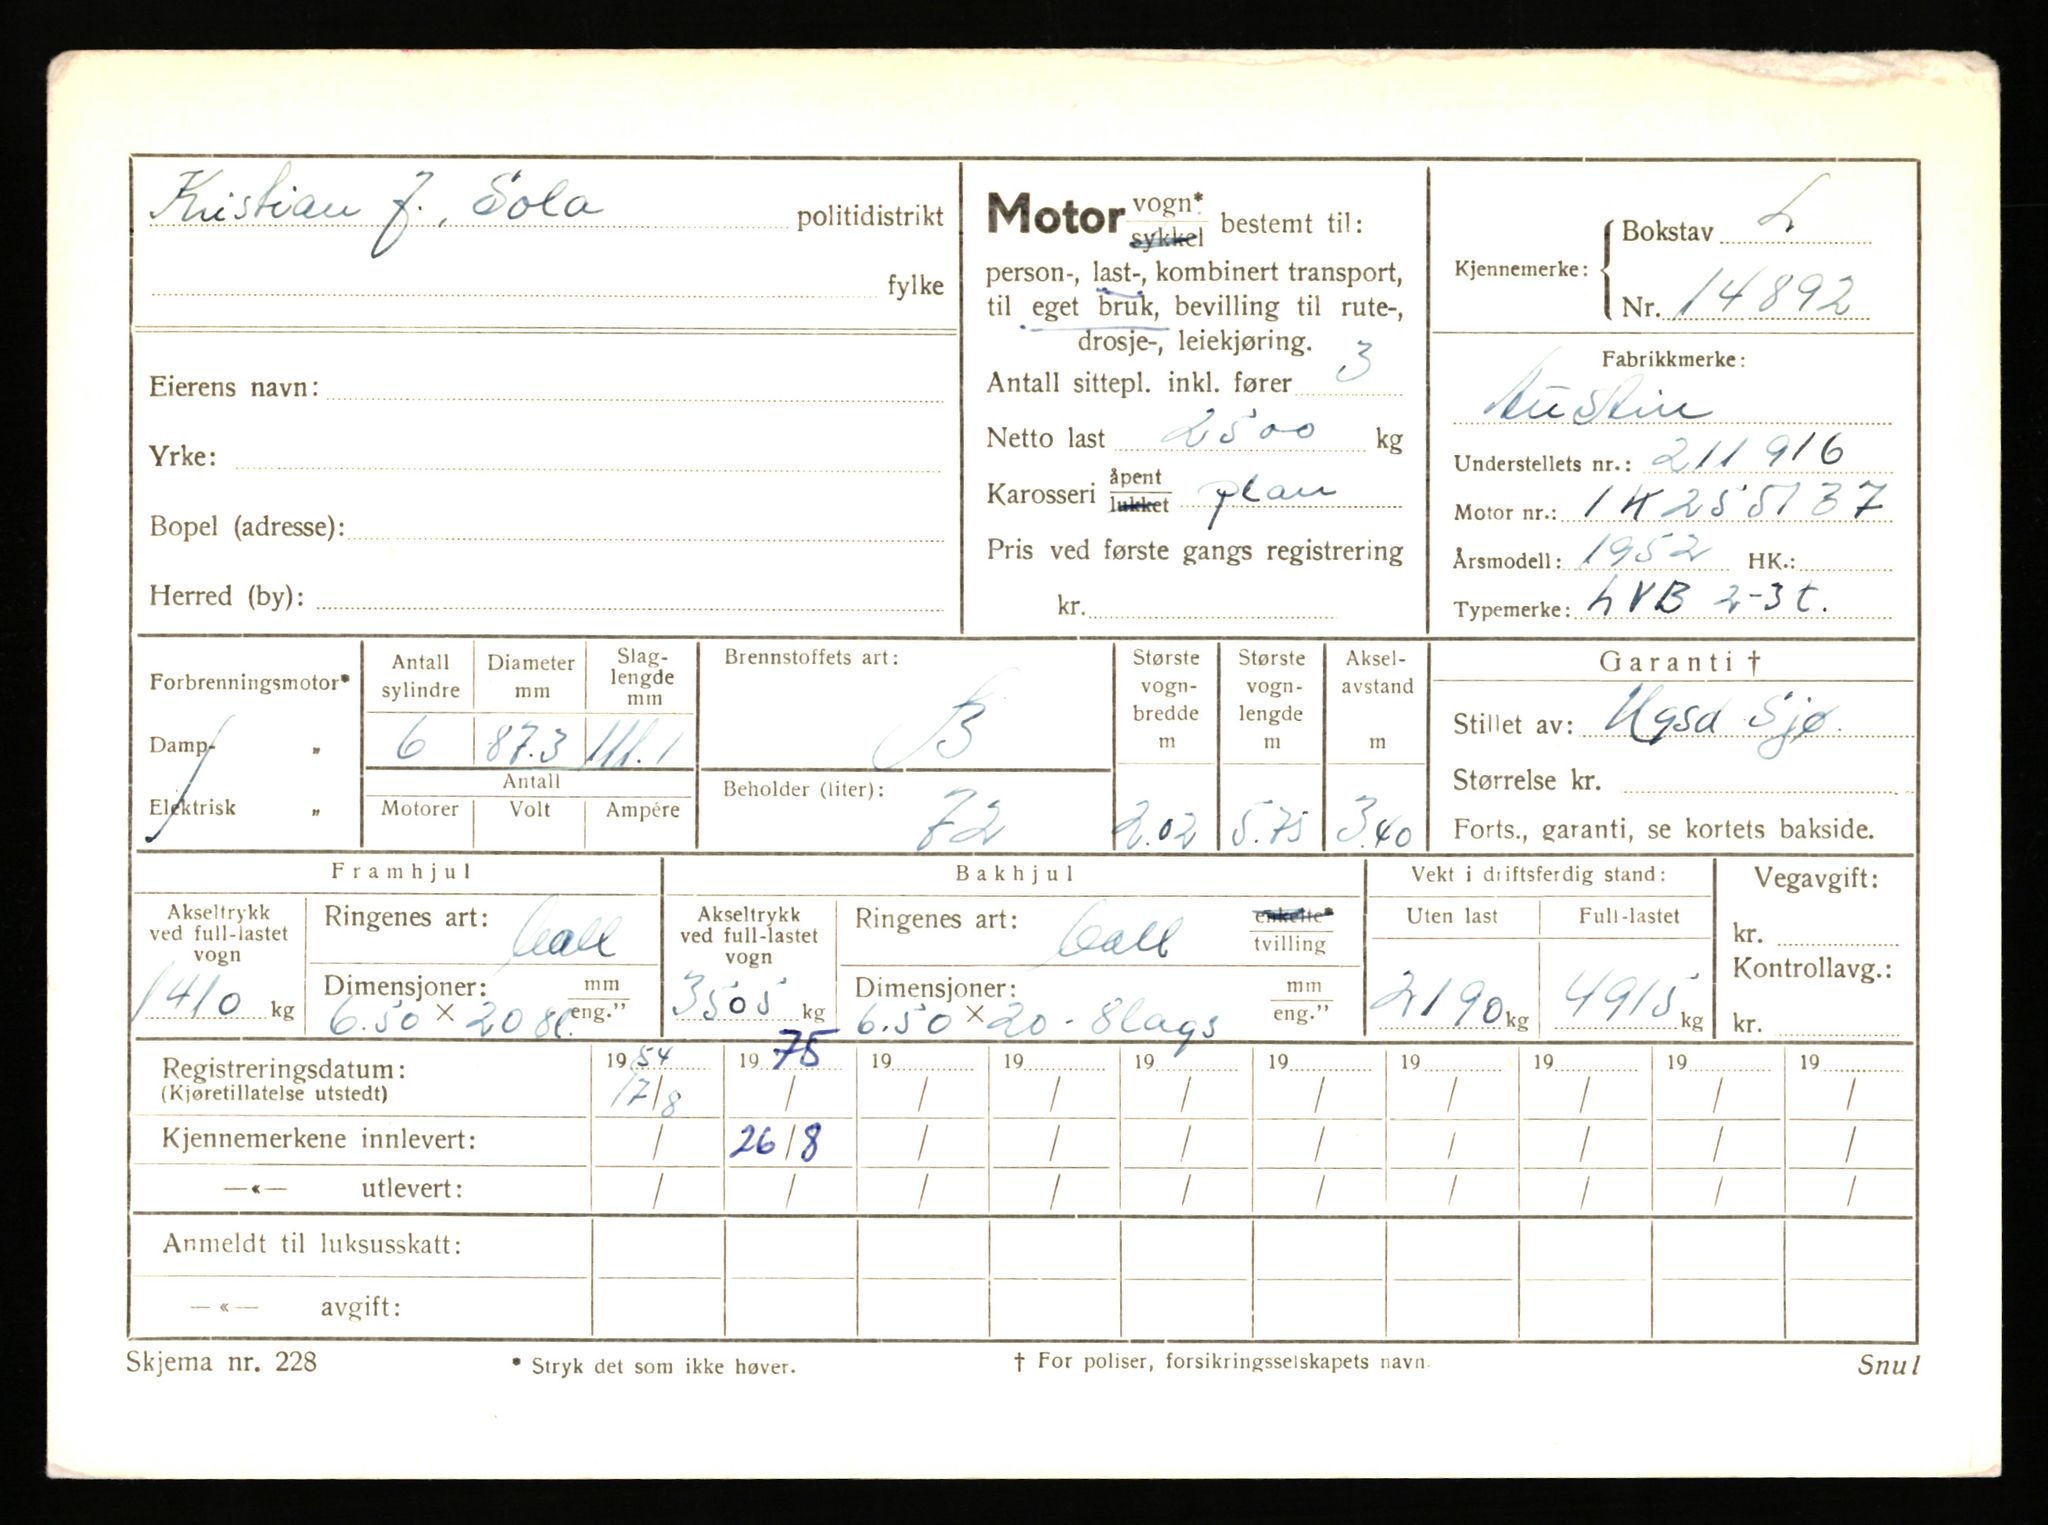 Kristian J., Sola politidistrikt
fylke
Eierens navn:
Yrke:
Bopel (adresse):
Herred (by):
Motor vogn* sykkel bestemt til:
person-, last-, kombinert transport,
til eget bruk, bevilling til rute-,
drosje-, leiekjøring.
Antall sittepl. inkl. fører 3
Netto last 2500 kg
Karosseri åpent lukket plan
Pris ved første gangs registrering
kr.
Kjennemerke: Bokstav L
Nr. 14892
Fabrikkmerke:
Austin
Understellets nr.: 211916
Motor nr.: 1K255137
Årsmodell: 1952 HK.:
Typemerke: LVB 2-3t.
Forbrenningsmotor*
Damp- „
Elektrisk „
Antall sylindre 6
Diameter mm 87.3
Slag-lengde mm 111.1
Antall
Motorer Volt Ampére
Brennstoffets art: B
Beholder (liter): 72
Største vogn-bredde m 2.02
Største vogn-lengde m 5.75
Aksel-avstand m 3.40
Garanti †
Stillet av: Ugsd Sjø.
Størrelse kr.
Forts., garanti, se kortets bakside.
Framhjul
Akseltrykk ved full-lastet vogn 1410 kg
Ringenes art:
Dimensjoner: mm eng.”
6.50 × 20 8l.
Bakhjul
Akseltrykk ved full-lastet vogn 3505 kg
Ringenes art: enkelte* tvilling
Dimensjoner: mm eng.”
6.50 × 20 - 8lags
Vekt i driftsferdig stand:
Uten last 2190 kg
Full-lastet 4915 kg
Vegavgift:
kr.
Kontrollavg.:
kr.
Registreringsdatum: 1954 1975 19 19 19 19 19 19 19 19
(Kjøretillatelse utstedt) 17/8 / / / / / / / / /
Kjennemerkene innlevert: / 26/8 / / / / / / / /
—«— utlevert: / / / / / / / / / /
Anmeldt til luksusskatt:
—«— avgift:
Skjema nr. 228 * Stryk det som ikke høver. † For poliser, forsikringsselskapets navn. Snul